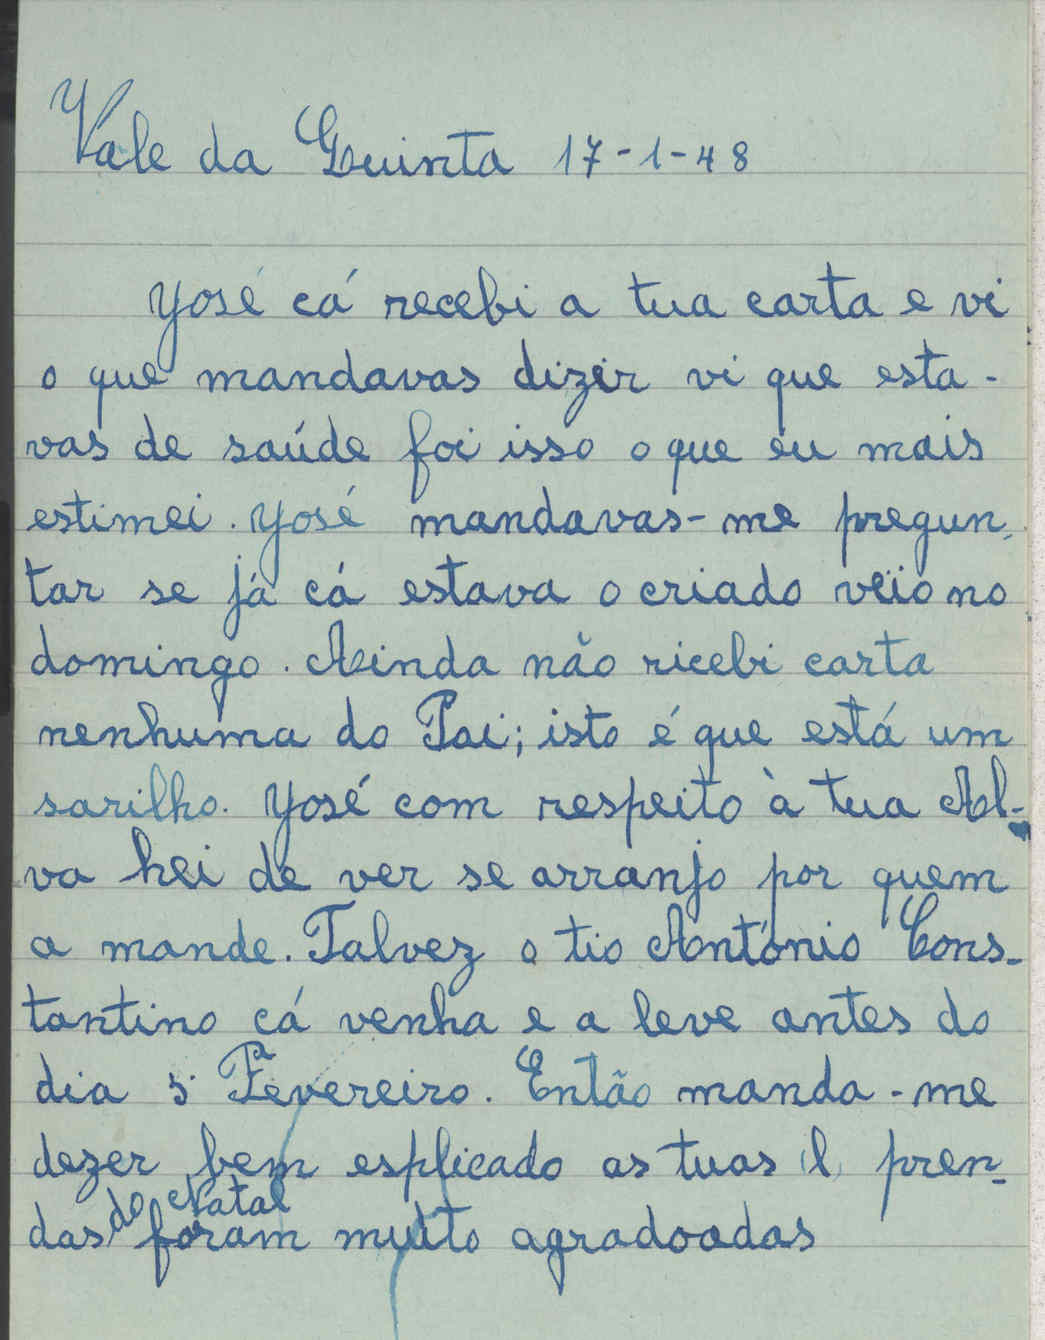 Vale da Quinta 17-1-48
José cá recebi a tua carta e vi
o que mandavas dizer vi que esta-
vas de saúde foi isso o que eu mais
estimei. José mandavas-me pregun-
tar se já cá estava o criado veio no
domingo. Ainda não ricebi carta
nenhuma do Pai; isto é que está um
sarilho. José com respeito à tua Al-
va hei de ver se arranjo por quem
a mande. Talvez o tio António Cons-
tantino cá venha e a leve antes do
dia 5 Fevereiro. Então manda-me
dezer bem esplicado as tuas pren-
das do Natal foram muito agradoadas